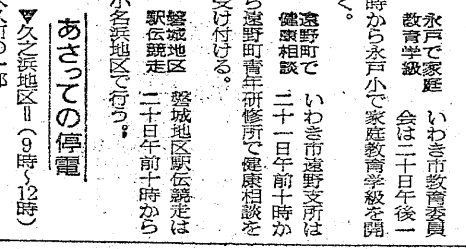 永戸で家庭
教育学級
いわき市教育委員
会は二十日午後一
時から永戸小で家庭教育学級を開
く。
遠野町で
健康相談
いわき市遠野支所は
二十一日午前十時か
ら遠野町青年研修所で健康相談を
受け付ける。
磐城地区
駅伝競走
磐城地区駅伝競走は
二十日午前十時から
小名浜地区で行う。
あさっての停電
▼久之浜地区＝（9時〜12時）